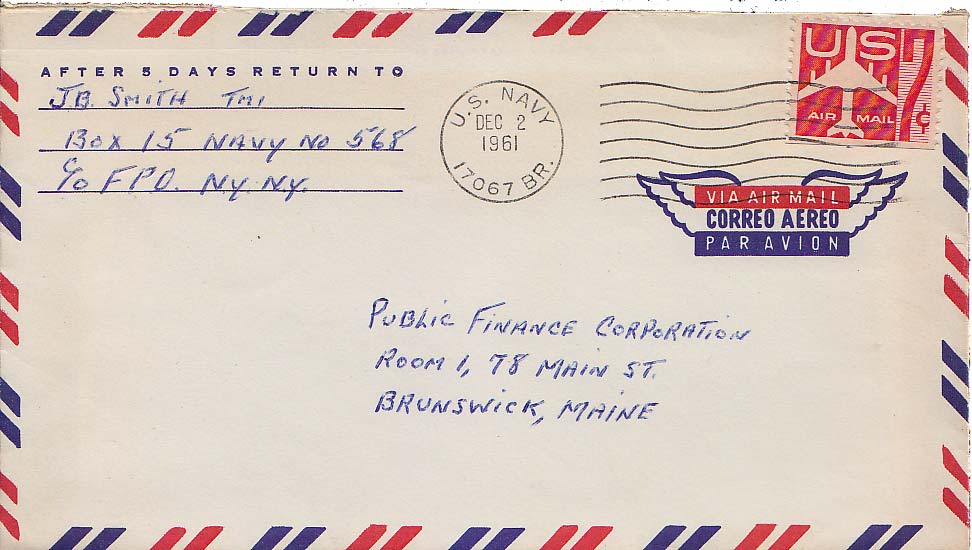 AFTER 5 DAYS RETURN TO
J.B. SMITH TM1
BOX 15 NAVY NO 568
C/O F.P.O. N.Y. N.Y.
U.S. NAVY
DEC 2
1961
17067 BR.
US
7¢
AIR MAIL
VIA AIR MAIL
CORREO AEREO
PAR AVION
PUBLIC FINANCE CORPORATION
ROOM 1, 78 MAIN ST.
BRUNSWICK, MAINE